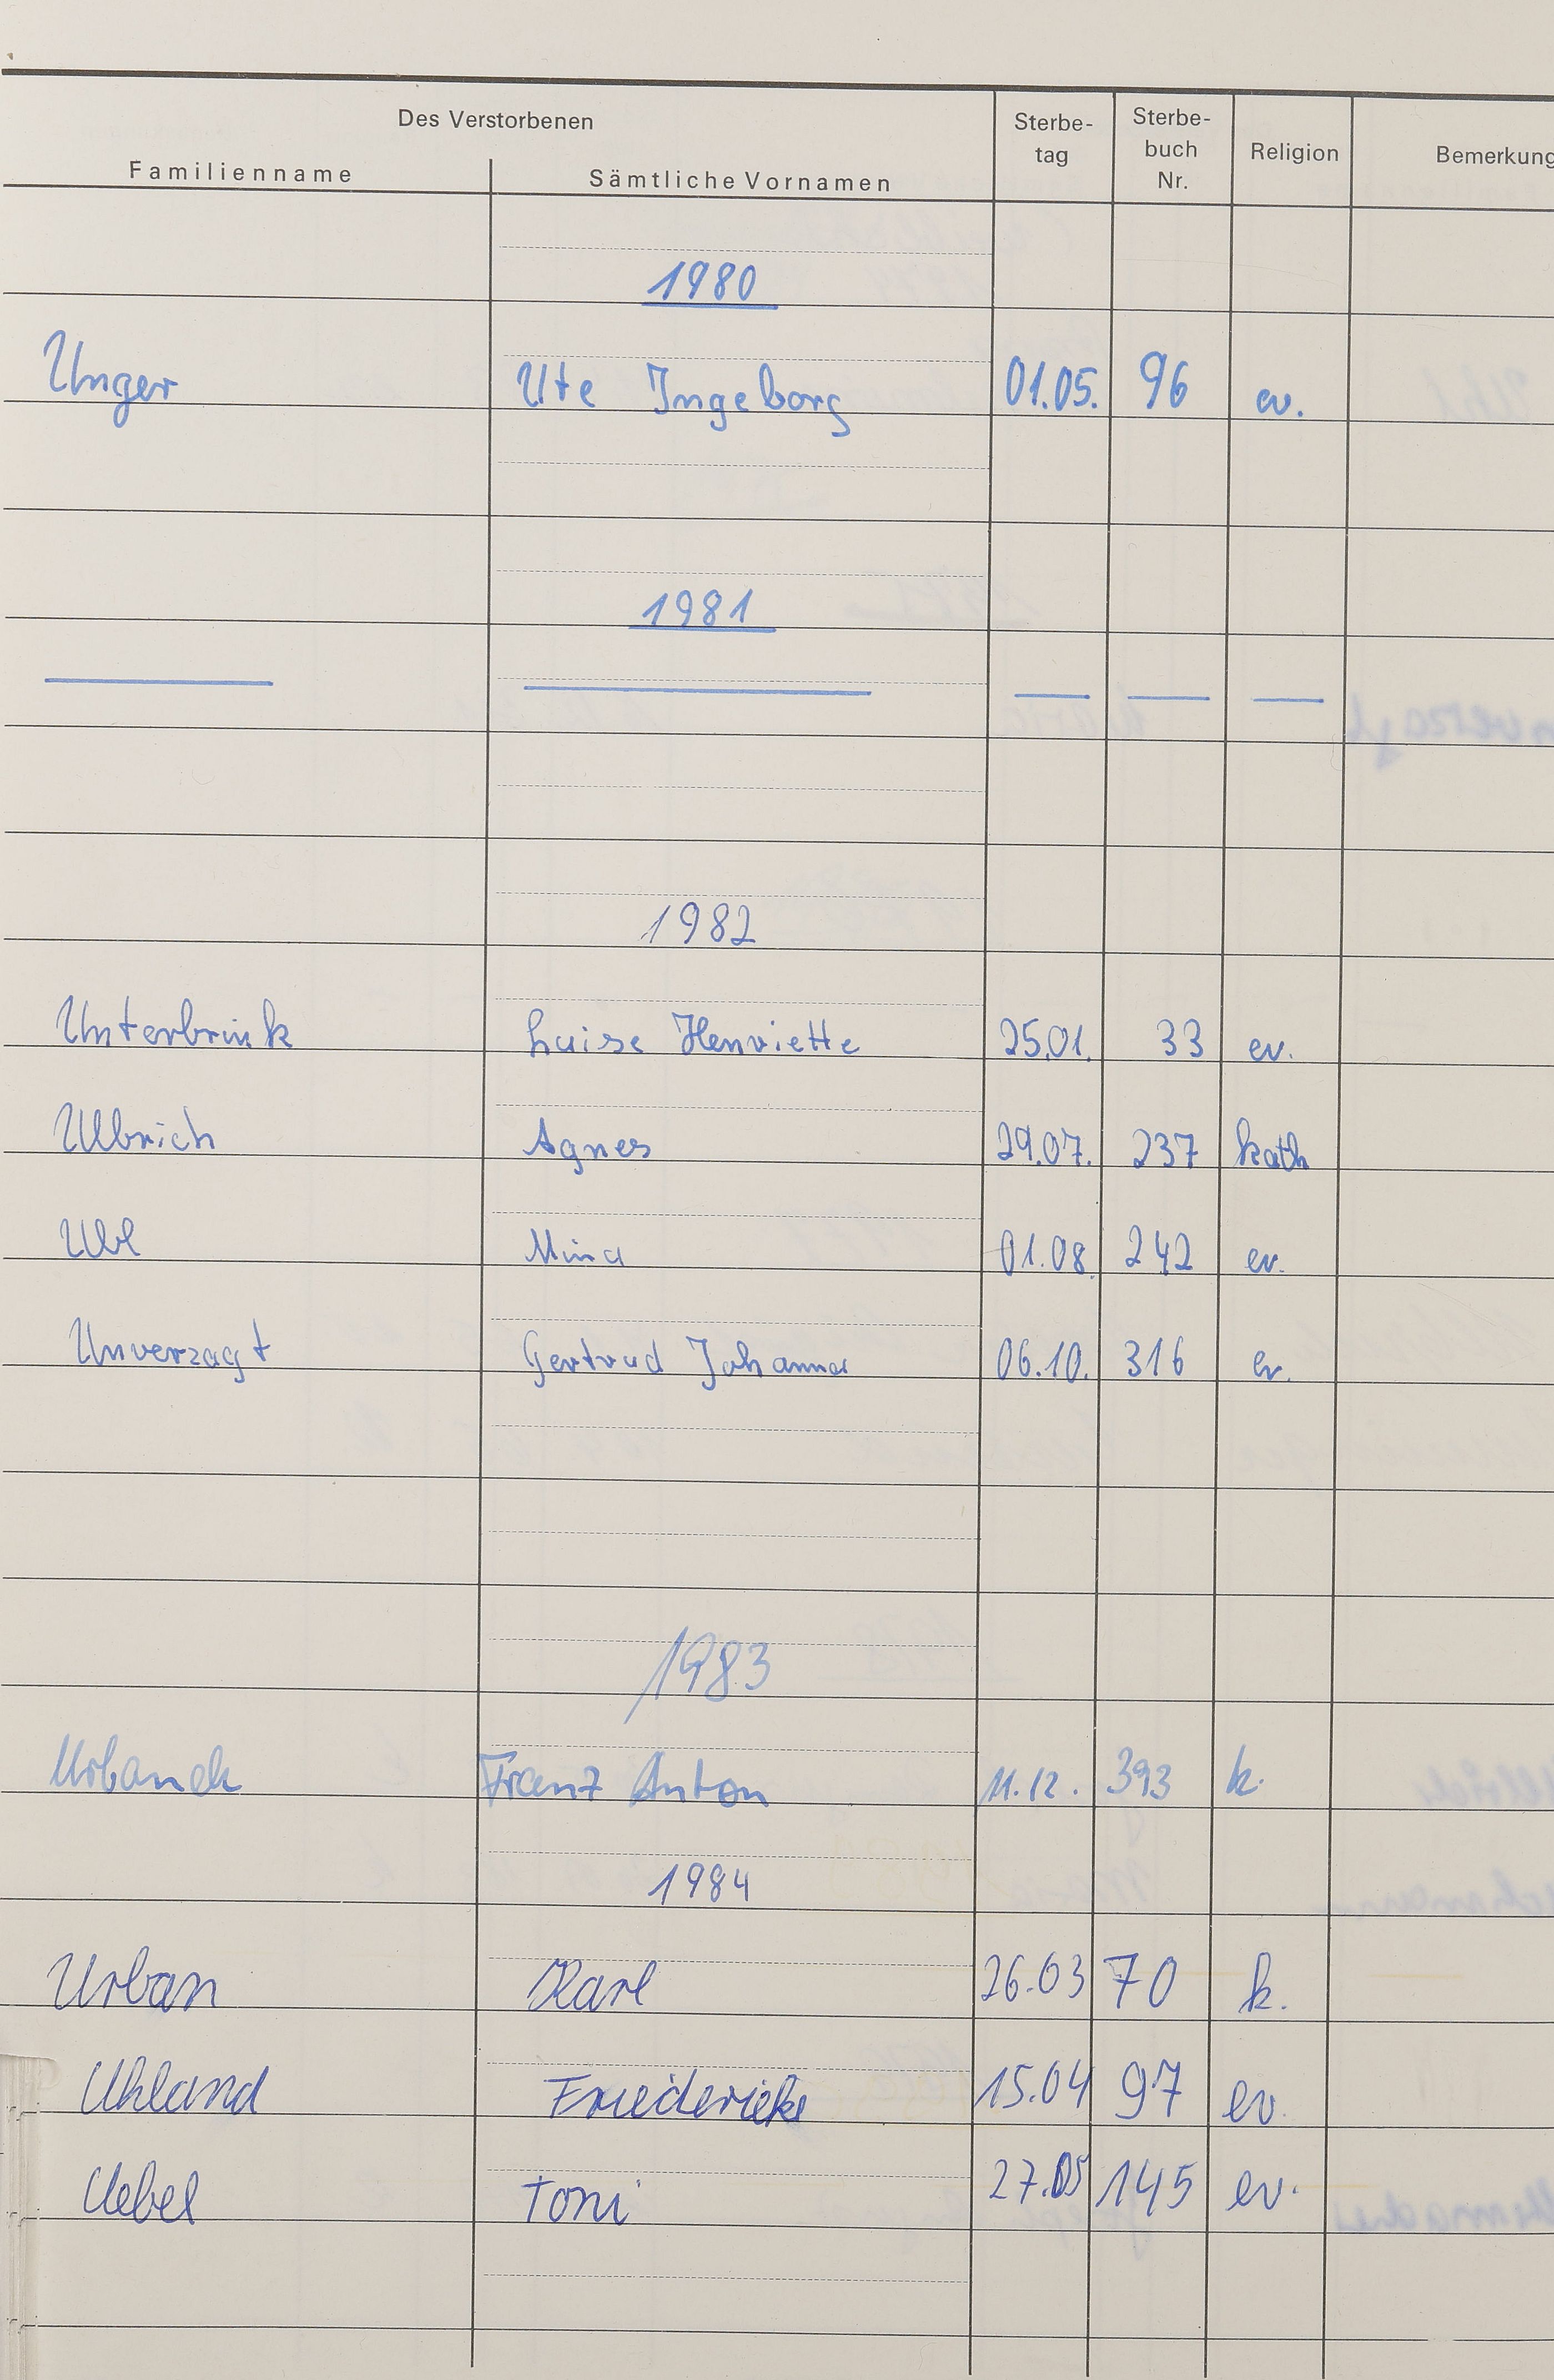 Des Verstorbenen
Familienname Sämtliche Vornamen Sterbe-
tag Sterbe-
buch
Nr. Religion Bemerkung
1980
Unger Ute Ingeborg 01.05. 96 ev.
1981
1982
Unterbrink Luise Henriette 25.01. 33 ev.
Ulbrich Agnes 29.07. 237 kath
Uhl Mina 01.08. 242 ev.
Unverzagt Gertrud Johanna 06.10. 316 ev.
1983
Urbanek Franz Anton 11.12. 393 k.
1984
Urban Karl 26.03 70 k.
Uhland Friederieke 15.04 97 ev.
Uebel Toni 27.05 145 ev.